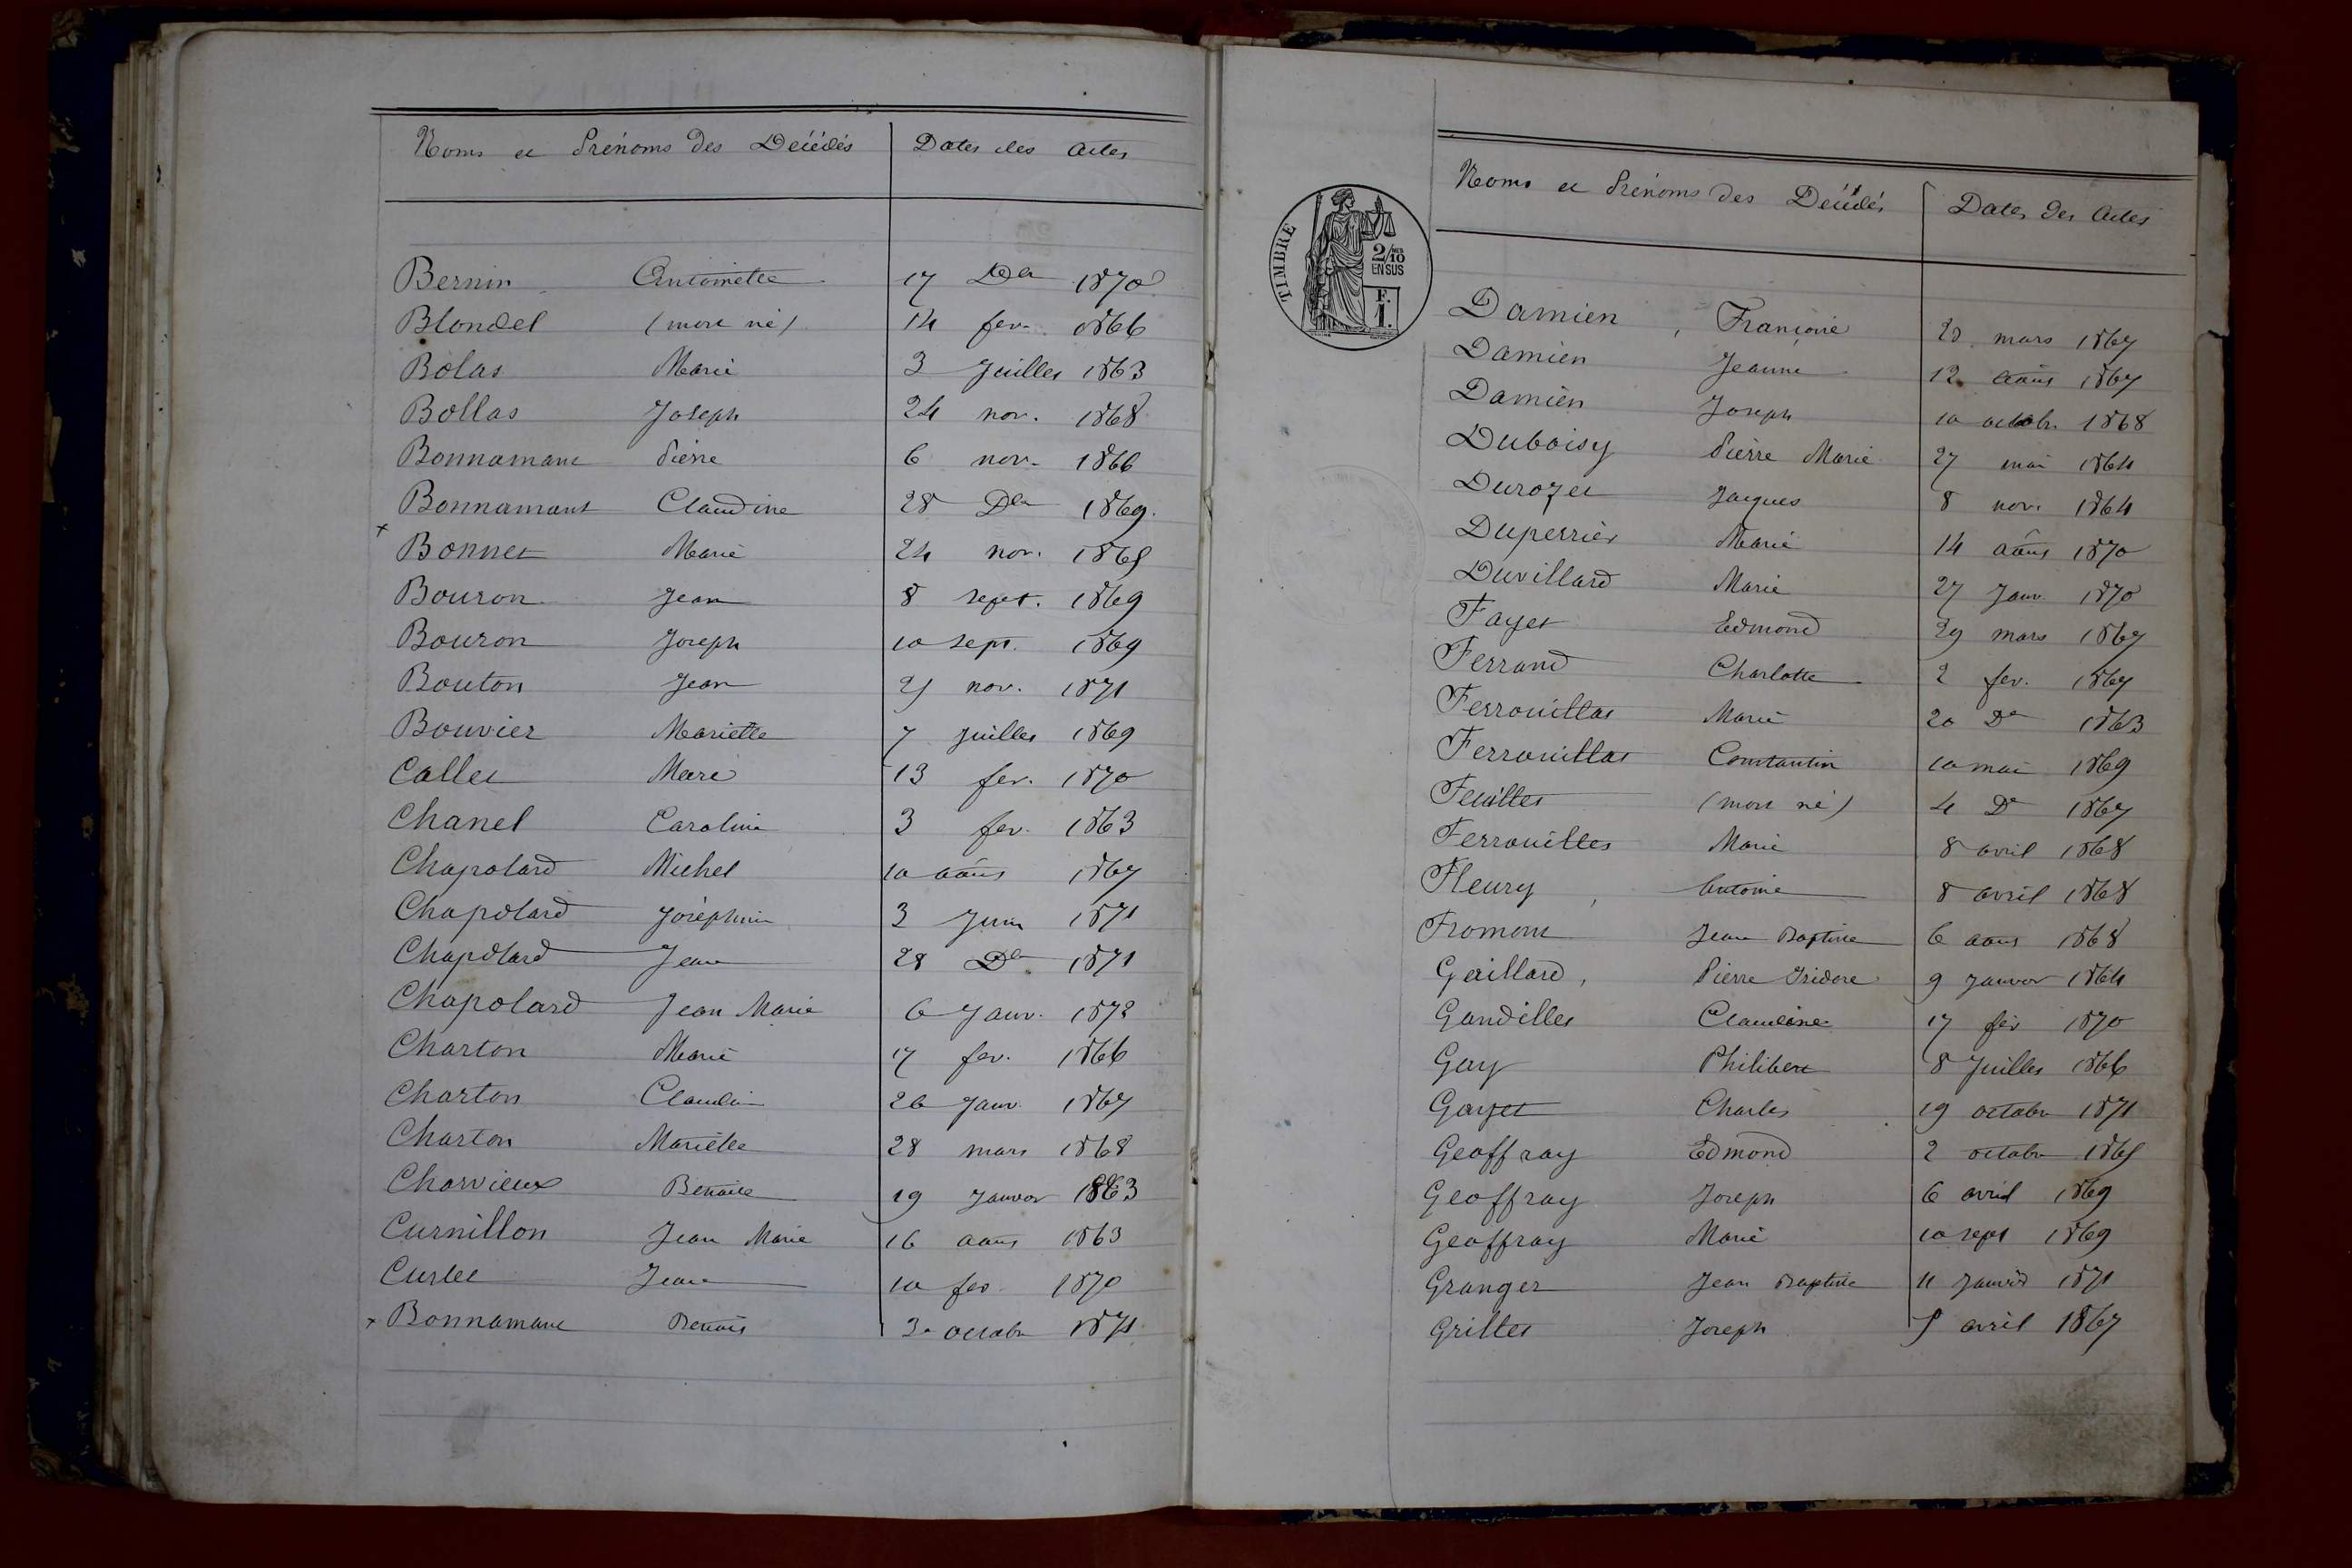 Noms et Prénoms des Décédés Dates des Actes
Bernin Antoinette 17 Der 1870
Blondel (mort né) 14 fev. 1866
Bolas Marie 3 Juillet 1863
Bollas Joseph 24 nov. 1868
Bonnamant Pierre 6 nov. 1866
Bonnamant Claudine 28 Der 1869.
x Bonnet Marie 24 nov. 1865
Bouron Jean 8 sept. 1869
Bouron Joseph 10 sept. 1869
Bouton Jean 25 nov. 1871
Bouvier Mariette 7 Juillet 1869
Callet Marie 13 fev. 1870
Chanel Caroline 3 fev. 1863
Chapolard Michel 10 août 1867
Chapolard Joséphine 3 Juin 1871
Chapolard Jean 28 Der 1871
Chapolard Jean Marie 6 Janv. 1872
Charton Marie 17 fev. 1866
Charton Claudine 26 Janv. 1867
Charton Mariette 28 mars 1868
Charvieux Benoite 19 Janvier 1863
Curnillon Jean Marie 16 aout 1863
Curtet Jean 10 fev. 1870
x Bonnamant Benoit 30 octobre 1871
TIMBRE
2/10 EN SUS
F. 1.
Noms et Prénoms des Décédés Dates des Actes
Damien, Françoise mars 1867
Damien Jeanne 12 août 1867
Damien Joseph 10 octobre 1868
Duboisy Pierre Marie 27 mai 1864
Durozet Jacques 8 nov. 1864
Duperrier Marie 14 août 1870
Duvillard Marie 27 Janv. 1870
Fayet Edmond 29 mars 1867
Ferrand Charlotte 2 fev. 1867
Ferrouillat Marie 20 De 1863
Ferrouillat Constantin 10 mai 1869
Feuillet (mort né) 4 De 1867
Ferrouillet Marie 8 avril 1868
Fleury, Antoine 8 avril 1868
Fromont Jean Baptiste 6 aout 1868
Gaillard, Pierre Isidore 9 Janvier 1864
Gandillet Claudine 17 fév 1870
Gay Philibert 8 Juillet 1866
Gayet Charles 19 octobre 1871
Geoffray Edmond 2 octobre 1865
Geoffray Joseph 6 avril 1869
Geoffray Marie 10 sept 1869
Granger Jean Baptiste 11 Janvier 1871
Grillet Joseph 5 avril 1867